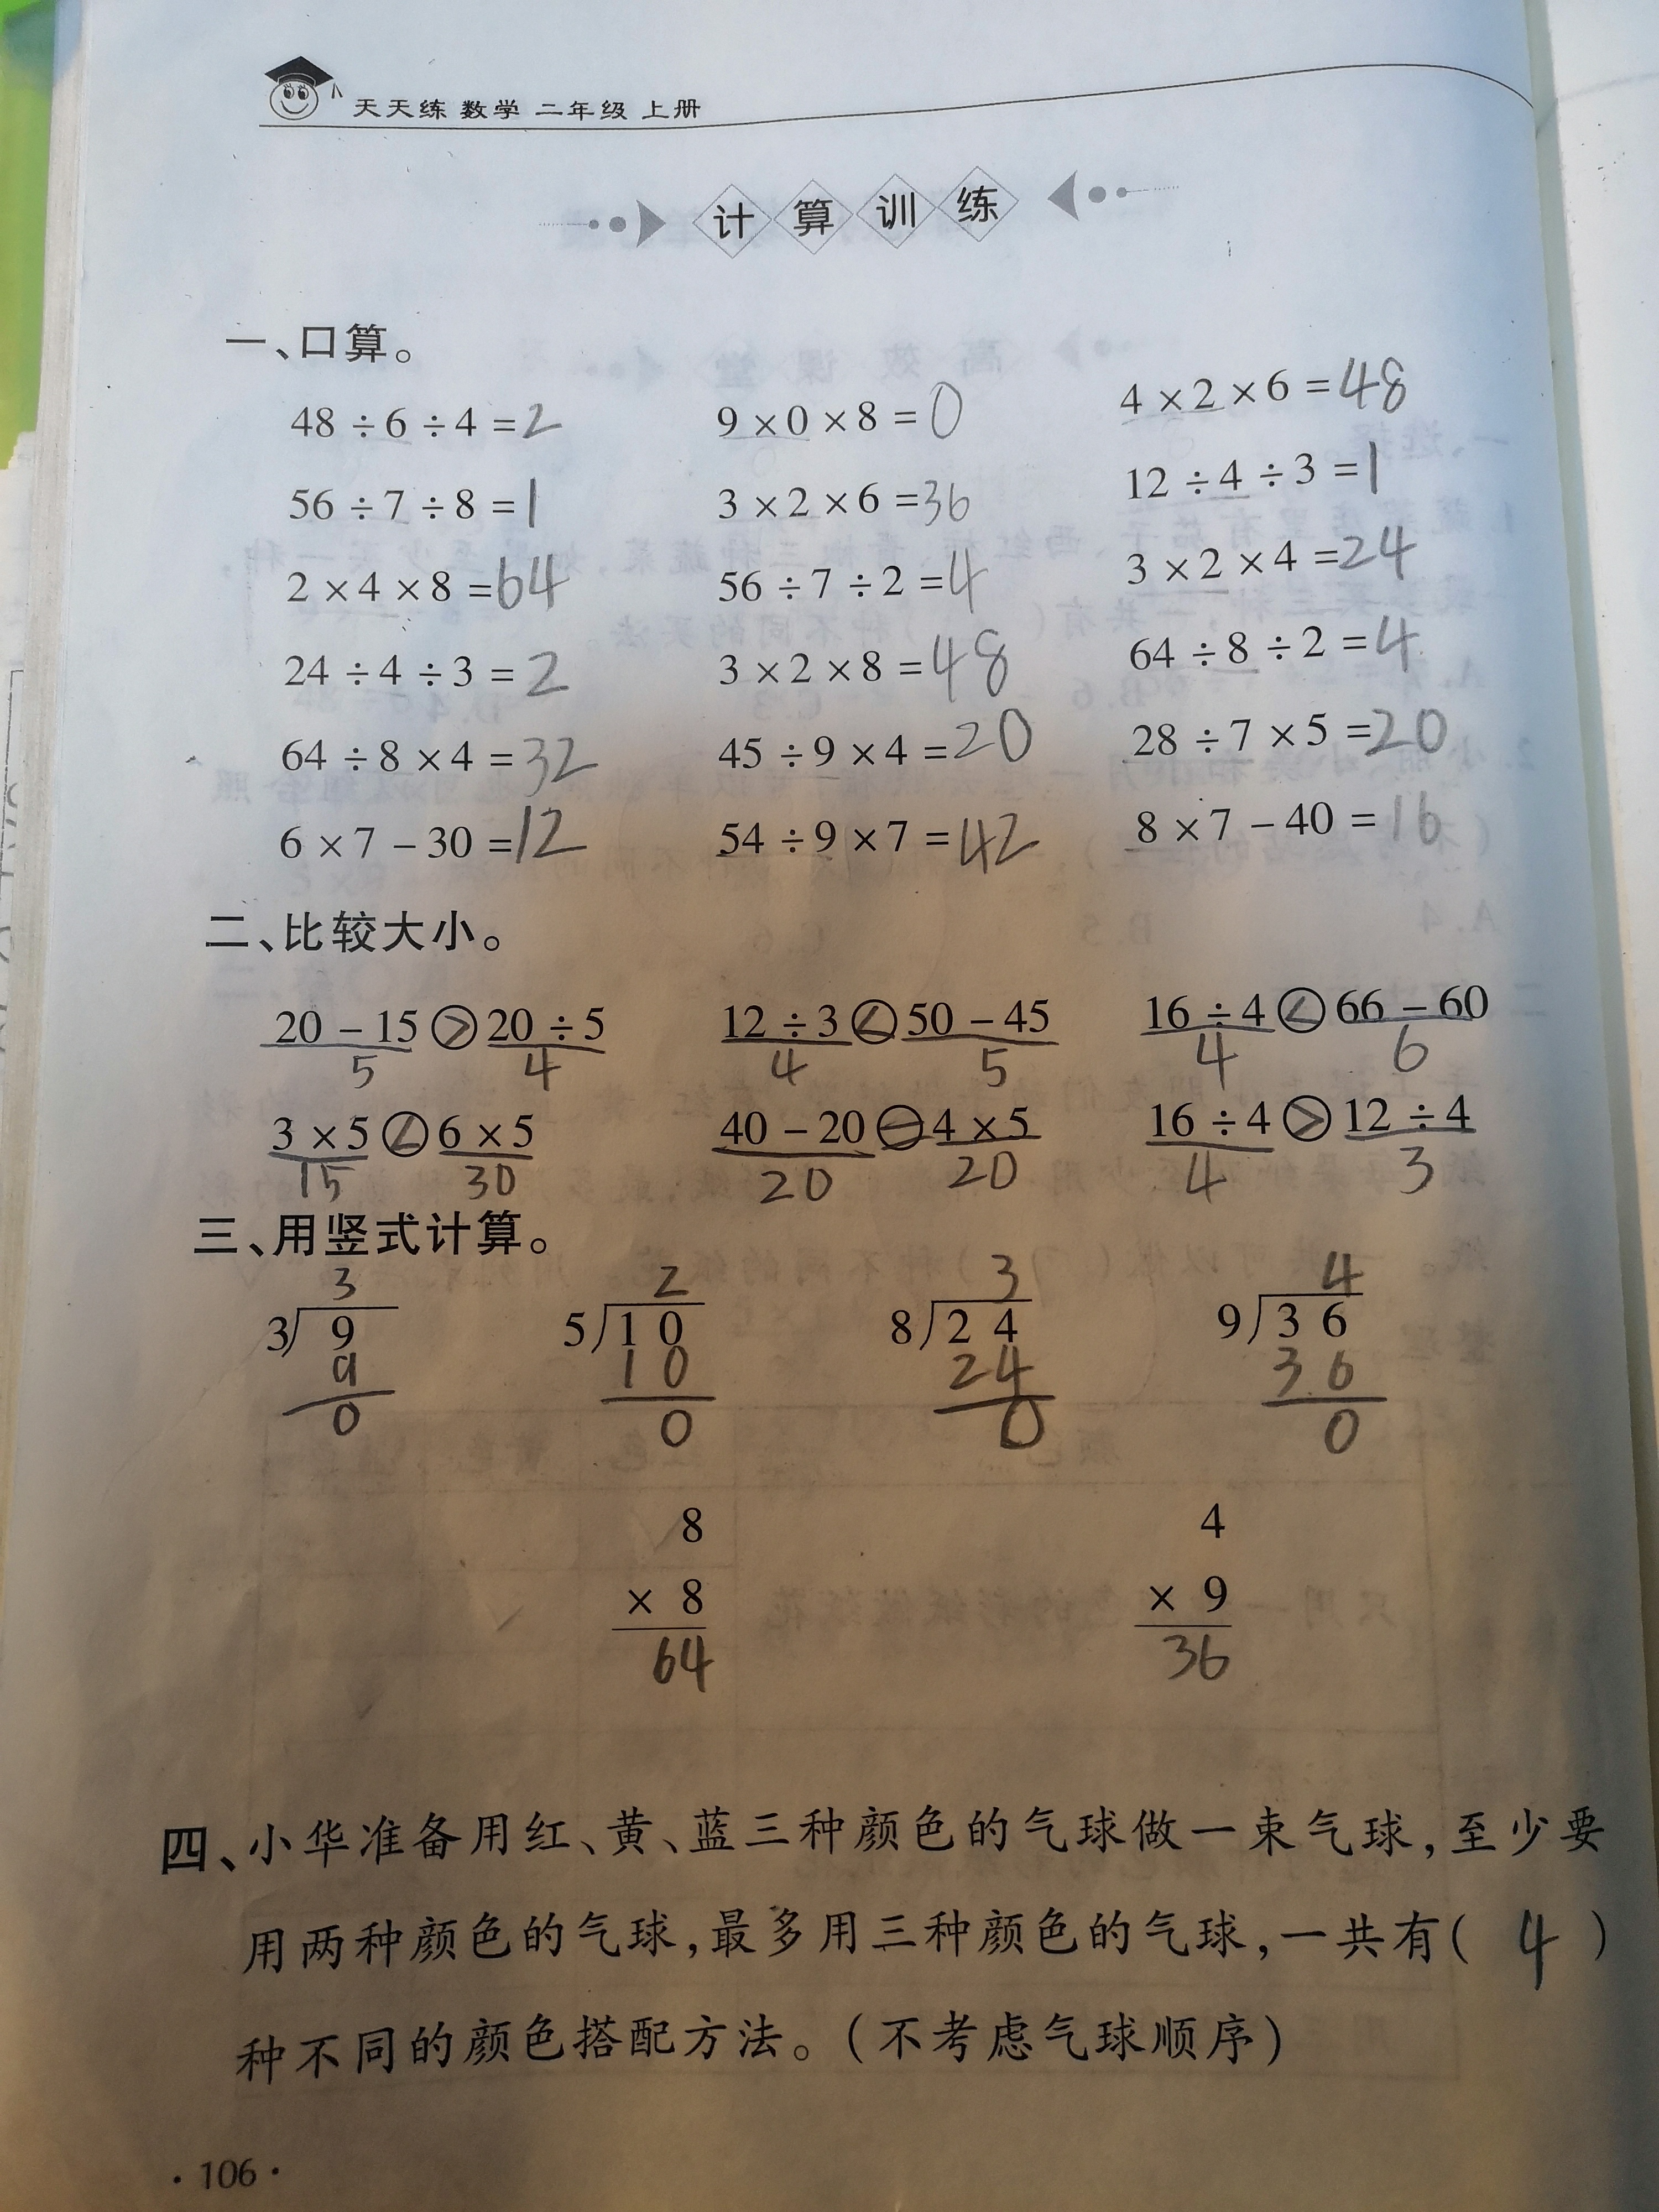 天天练 数学 二年级 上册
计算训练
一、口算。
48 ÷ 6 ÷ 4 = 2 9 × 0 × 8 = 0 4 × 2 × 6 = 48
56 ÷ 7 ÷ 8 = 1 3 × 2 × 6 = 36 12 ÷ 4 ÷ 3 = 1
2 × 4 × 8 = 64 56 ÷ 7 ÷ 2 = 4 3 × 2 × 4 = 24
24 ÷ 4 ÷ 3 = 2 3 × 2 × 8 = 48 64 ÷ 8 ÷ 2 = 4
64 ÷ 8 × 4 = 32 45 ÷ 9 × 4 = 20 28 ÷ 7 × 5 = 20
6 × 7 － 30 = 12 54 ÷ 9 × 7 = 42 8 × 7 － 40 = 16
二、比较大小。
20 － 15 > 20 ÷ 5 12 ÷ 3 < 50 － 45 16 ÷ 4 < 66 － 60
5 4 4 5 4 6
3 × 5 < 6 × 5 40 － 20 = 4 × 5 16 ÷ 4 > 12 ÷ 4
15 30 20 20 4 3
三、用竖式计算。
3 2 3 4
3 9 5 10 8 24 9 36
9 10 24 36
0 0 0 0
8 4
× 8 × 9
64 36
四、小华准备用红、黄、蓝三种颜色的气球做一束气球，至少要
用两种颜色的气球，最多用三种颜色的气球，一共有（ 4 ）
种不同的颜色搭配方法。（不考虑气球顺序）
·106·